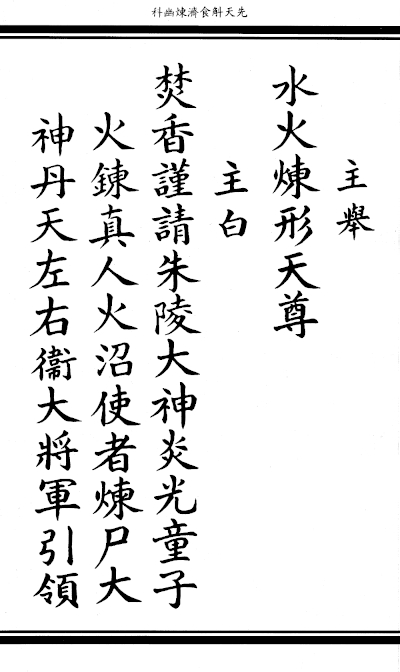 先天斛食濟煉幽科
主舉
水火煉形天尊
主白
焚香謹請朱陵大神炎光童子
火鍊真人火沼使者煉尸大
神丹天左右衞大將軍引領